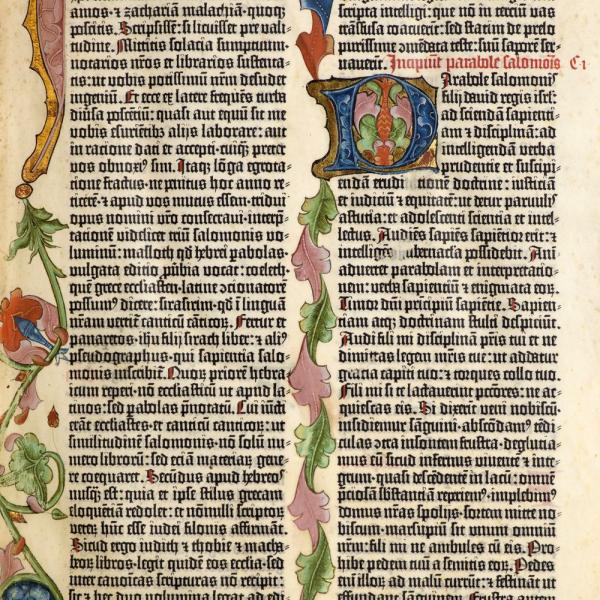 amos·⁊ zachariā malachiā·quoqꝫ
poscitis. Scripsissē: si licuisset pre vali-
tudine. Mittitis solacia sumptuum·
notarios nr̄os et librarios sustenta-
tis: ut vobis potissimū nr̄m desudet
ingeniū. Et ecce ex latere frequēs turba
diūsa poscētiū: quasi aut equū sit me
vobis esuriētibꝫ alijs laborare: aut
in ratione dati et accepti·cuiqꝫ preter
vos obnoxiꝰ sim. Itaqꝫ lōga egrota-
tione fractus·ne penitus hoc anno re-
ticerē·⁊ apud vos mutus essem·tridui
opus nomini vr̄o consecraui·interp̄-
tationē videlicet triū salomonis vo-
luminū: masloth qd̄ hebrei parabolas·
vulgata editio ꝓūbia vocat: coeleth·
quē grece ecclesiasten·latine ↄcionatorē
possumꝰ dicere: sirasirim·qd̄ ī linguā
nr̄am vertit̄ canticū cāticoꝝ. Fertur et
panaretos·ihū filij sirach liber: ⁊ aliꝰ
pseudographus·qui sapientia salo-
monis inscribit̄. Quoꝝ priorē hebra-
icum reperi·nō ecclesiasticū ut apud la-
tinos: sed parabolas p̄notatū. Cui iūcti
erāt ecclesiastes·et canticū canticoꝝ: ut
similitudinē salomonis·nō solū nu-
mero librorū: sed eciā materiaꝝ gene-
re coequaret. Secūdus apud hebreos
nusqꝫ est: quia et ipse stilus grecam
eloquētiā redolet: et nōnulli scriptoꝝ
veteꝝ hūc esse iudei filonis affirmāt.
Sicud ergo iudith ⁊ thobie ⁊ macha-
beoꝝ libros·legit quidē eos ecclīa·sed
inter canoīcas scripturas nō recipit:
sic ⁊ hec duo volumina legat ad edi-
scripta intelligi: que nō in terciū vas
trāsfusa coacuerīt: sed statim de prelo
purissime ↄmēdata teste: suū saporē ser-
vauerīt. Incipiūt parabole salomōis C·1
Parabole salomonis
filij dauid regis isrl̄:
ad sciendā sapienti-
am ⁊ disciplinā: ad
intelligendā verba
prudentie et suscipi-
endā eruditionē doctrine: iusticiā
et iudiciū ⁊ equitatē: ut detur paruulis
astucia: et adolescenti scientia et intel-
lectus. Audiēs sapiēs sapiētior erit: ⁊
intelligēs gubernacla possidebit. Ani-
aduertet parabolam et interpretatio-
nem: verba sapientiū ⁊ enigmata eoꝝ.
Timor dn̄i principiū sapiētie. Sapien-
tiam atqꝫ doctrinam stulti despiciūt.
Audi fili mi disciplinā pr̄is tui et ne
dimittas legem mr̄is tue: ut addatur
gratia capiti tuo: ⁊ torques collo tuo.
Fili mi si te lactauerint pctōres: ne ac-
quiescas eis. Si dixerīt veni nobiscū·
insidiemur sāguini·abscōdamꝰ tēdi-
culas ↄtra insontem frustra·deglucia-
mus eū sicud infernus viuentē ⁊ inte-
grum·quasi descēdentē in lacū: omnē
p̄ciosā sb̄stantiā reperiemꝰ·implebimꝰ
domus nr̄as spolijs·sortem mitte no-
biscum·marsupiū sit unum omniū
nr̄m: fili mi ne ambules cū eis. Pro-
hibe pedem tuū a semitis eoꝝ. Pedes
eni̅ illoꝝ ad malū currūt: ⁊ festināt ut
effundant sāguinem. Frustra autem